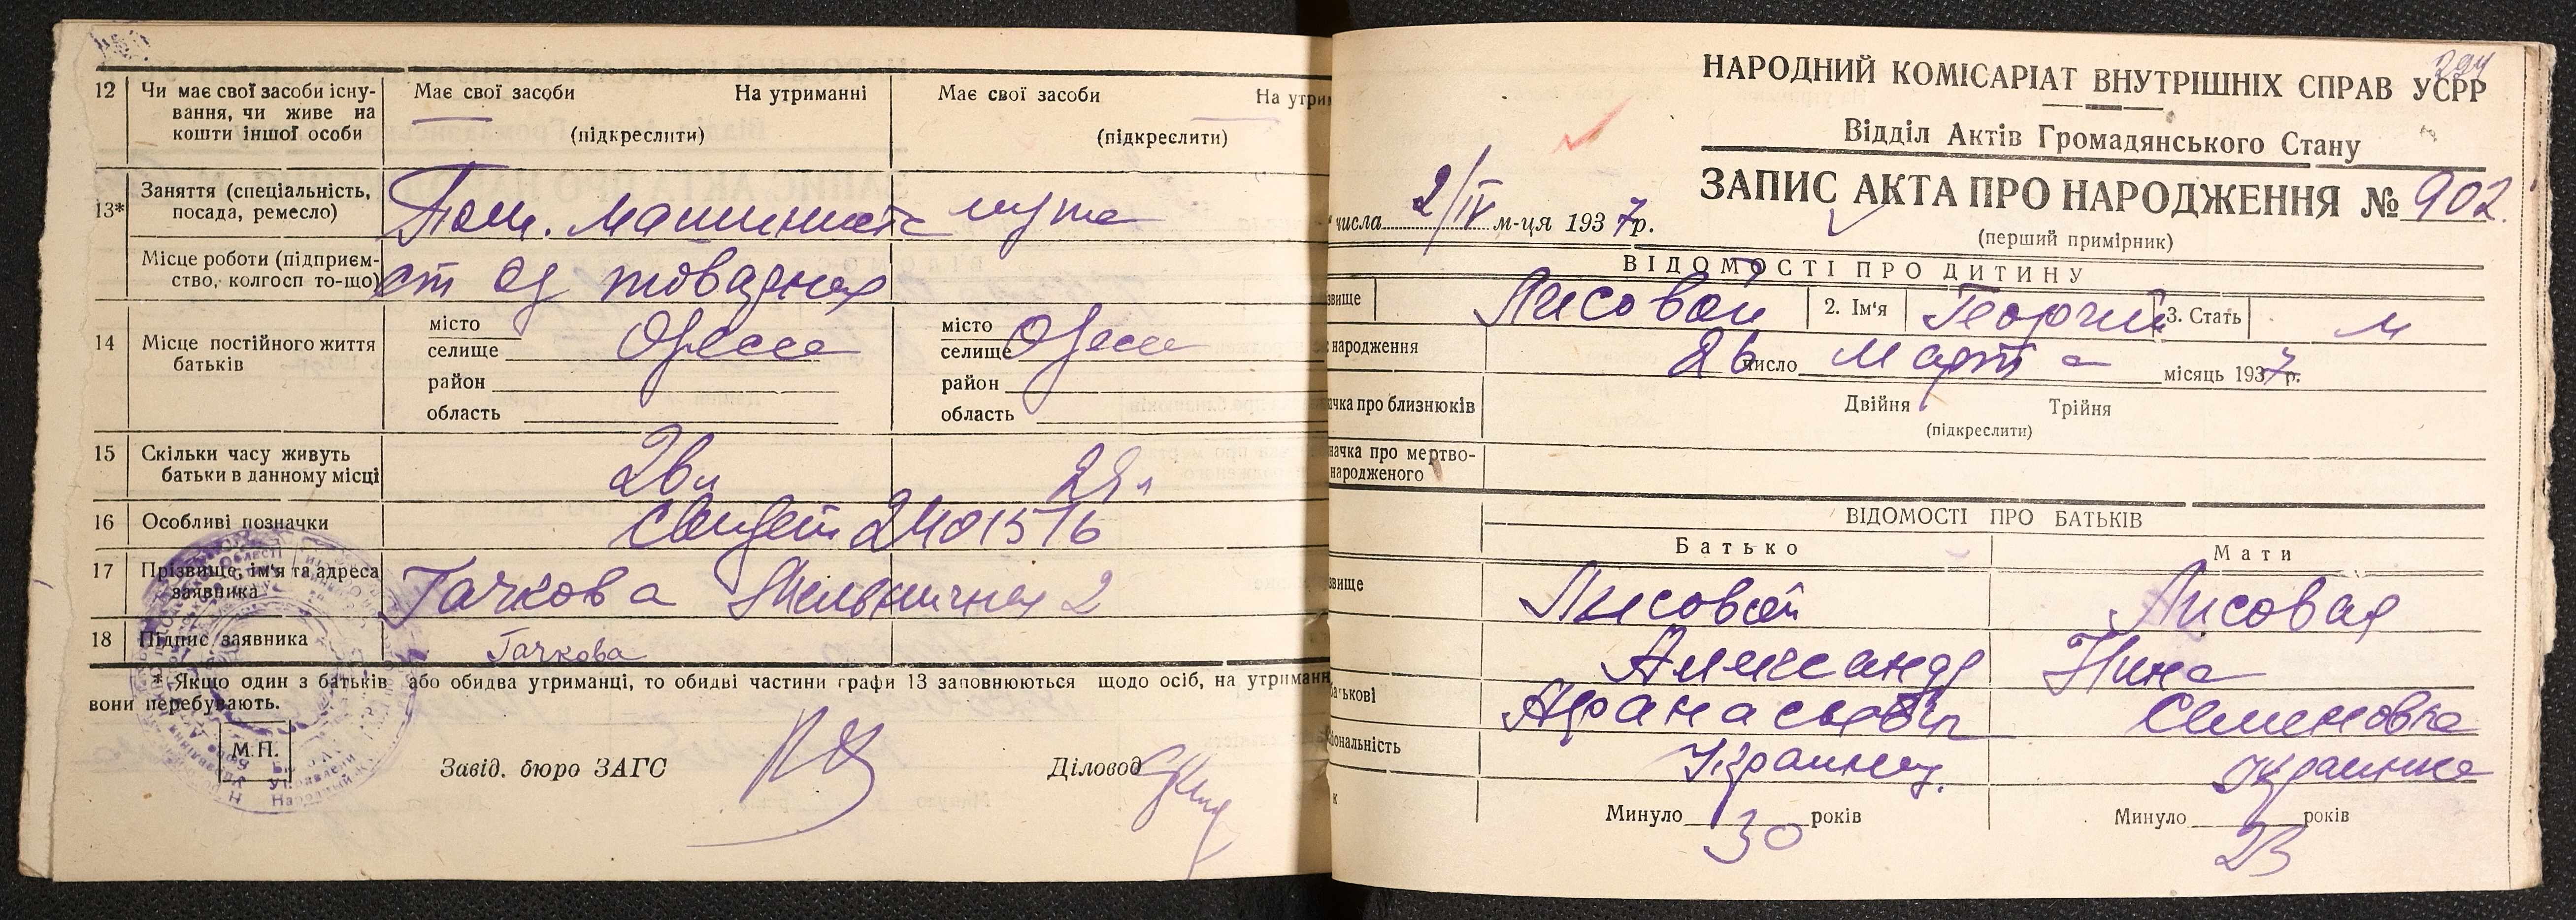 12 Чи має свої засоби існу-
вання, чи живе на
кошти іншої особи
Має свої засоби На утриманні
(підкреслити)
Має свої засоби На утрим
(підкреслити)
13* Заняття (спеціальність,
посада, ремесло)
Пом. машинист мужа
Місце роботи (підприєм-
ство, колгосп то-що)
ст Од товарная
14 Місце постійного життя
батьків
місто
селище Одесса
район
область
місто
селище Одесса
район
область
15 Скільки часу живуть
батьки в данному місці
16 Особливі позначки
17 Прізвище, ім'я та адреса
заявника
Гачкова Мельничная 2
18 Підпис заявника
Гачкова
* Якщо один з батьків або обидва утриманці, то обидві частини графи 13 заповнюються щодо осіб, на утриманн
вони перебувають.
М.П.
Завід. бюро ЗАГС Діловод
294
НАРОДНИЙ КОМІСАРІАТ ВНУТРІШНІХ СПРАВ УСРР
Відділ Актів Громадянського Стану
ЗАПИС АКТА ПРО НАРОДЖЕННЯ № 902.
числа 2/IV м-ця 1937 р.
(перший примірник)
ВІДОМОСТІ ПРО ДИТИНУ
звище Лисовой 2. Ім'я Георгий 3. Стать м
народження 26 число Марта місяць 1937 р.
ачка про близнюків Двійня Трійня
(підкреслити)
начка про мертво-
народженого
ВІДОМОСТІ ПРО БАТЬКІВ
Батько Мати
звище Лисовой Лисовая
Александр Нина
батькові Афанасьевич Семеновна
ональність Украинец. Украинка
к Минуло 30 років Минуло 23 років